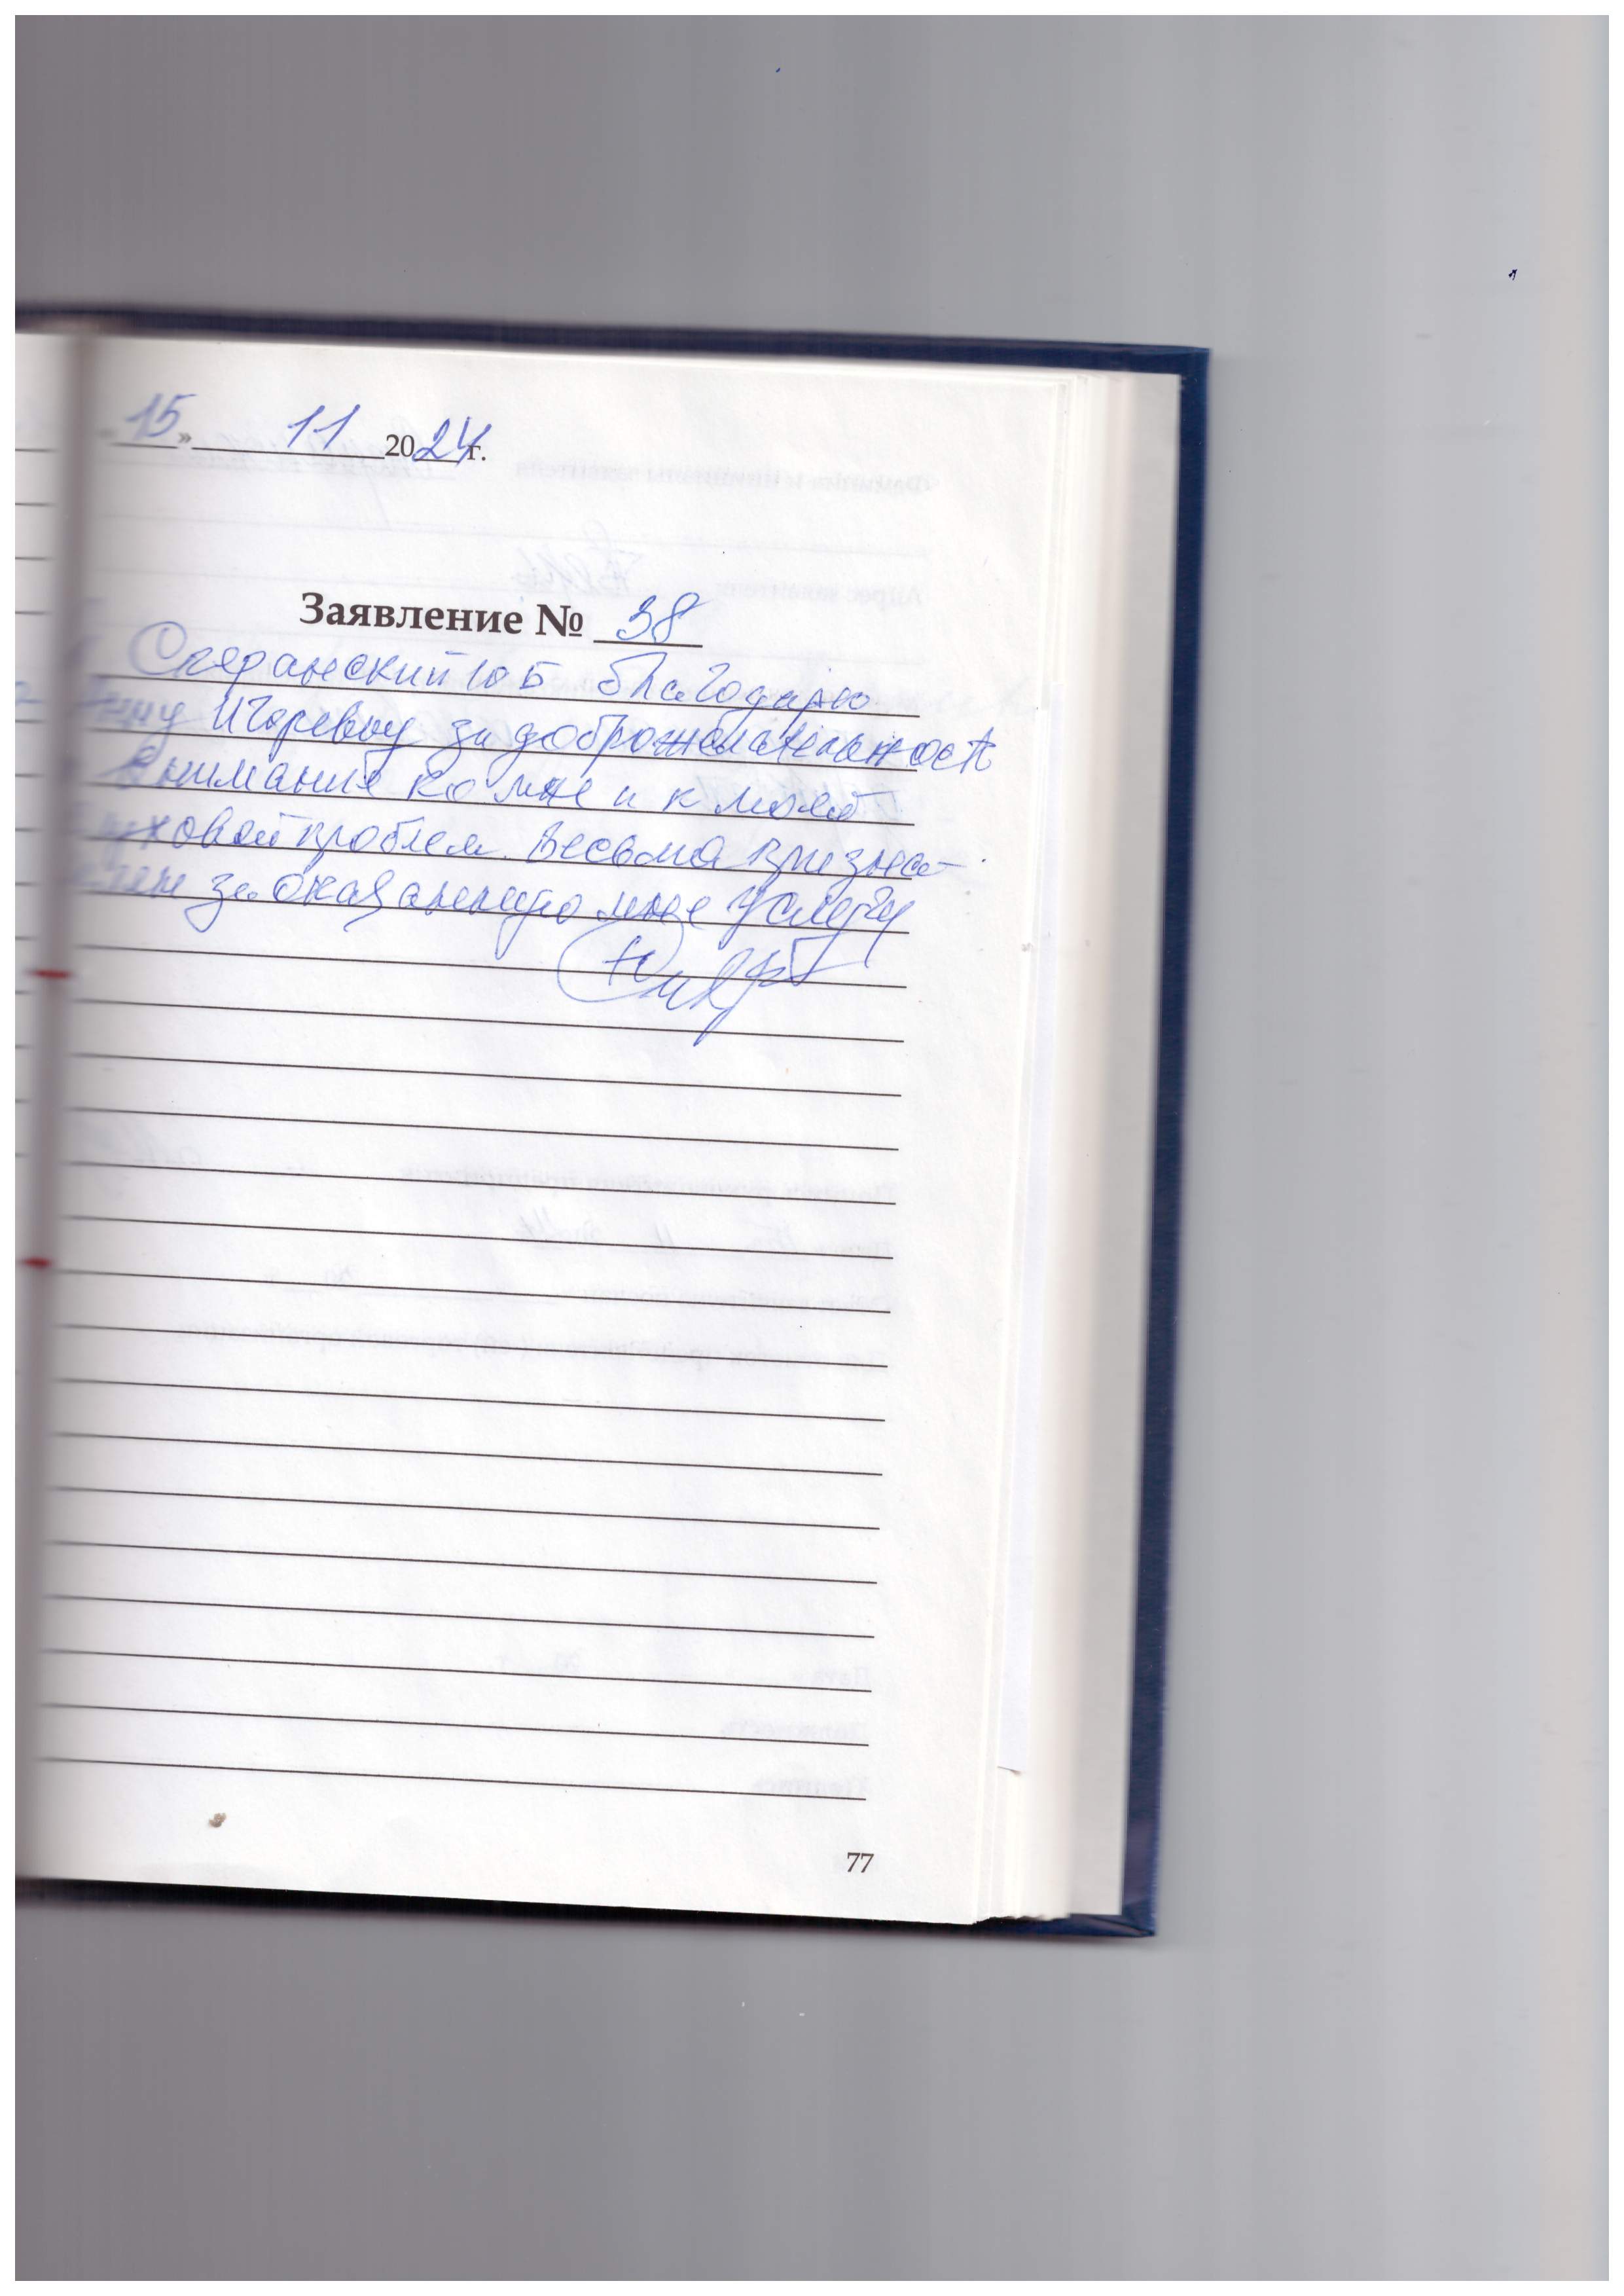 «15» 11 2024 г.
Заявление № 38
Сперанский Ю Б благодарю
Анну Игоревну за доброжелательность
внимание ко мне и к моей
слуховой проблем. Весьма призна-
телен за оказанную мне услугу
77